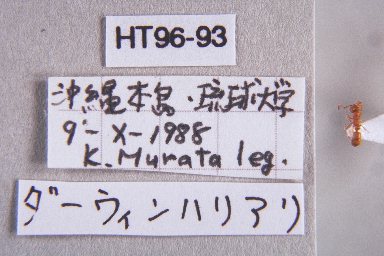 HT96-93
沖縄本島・琉球大学
9-X-1988
K. Murata leg.
ダーウィンハリアリ